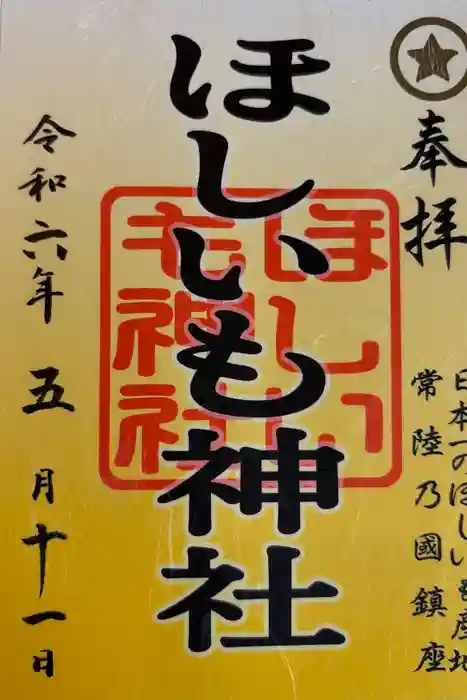 奉拝
日本一のほしいも産地
常陸乃國鎮座
ほしいも神社
ほしい
も神社
令和六年 五月十一日